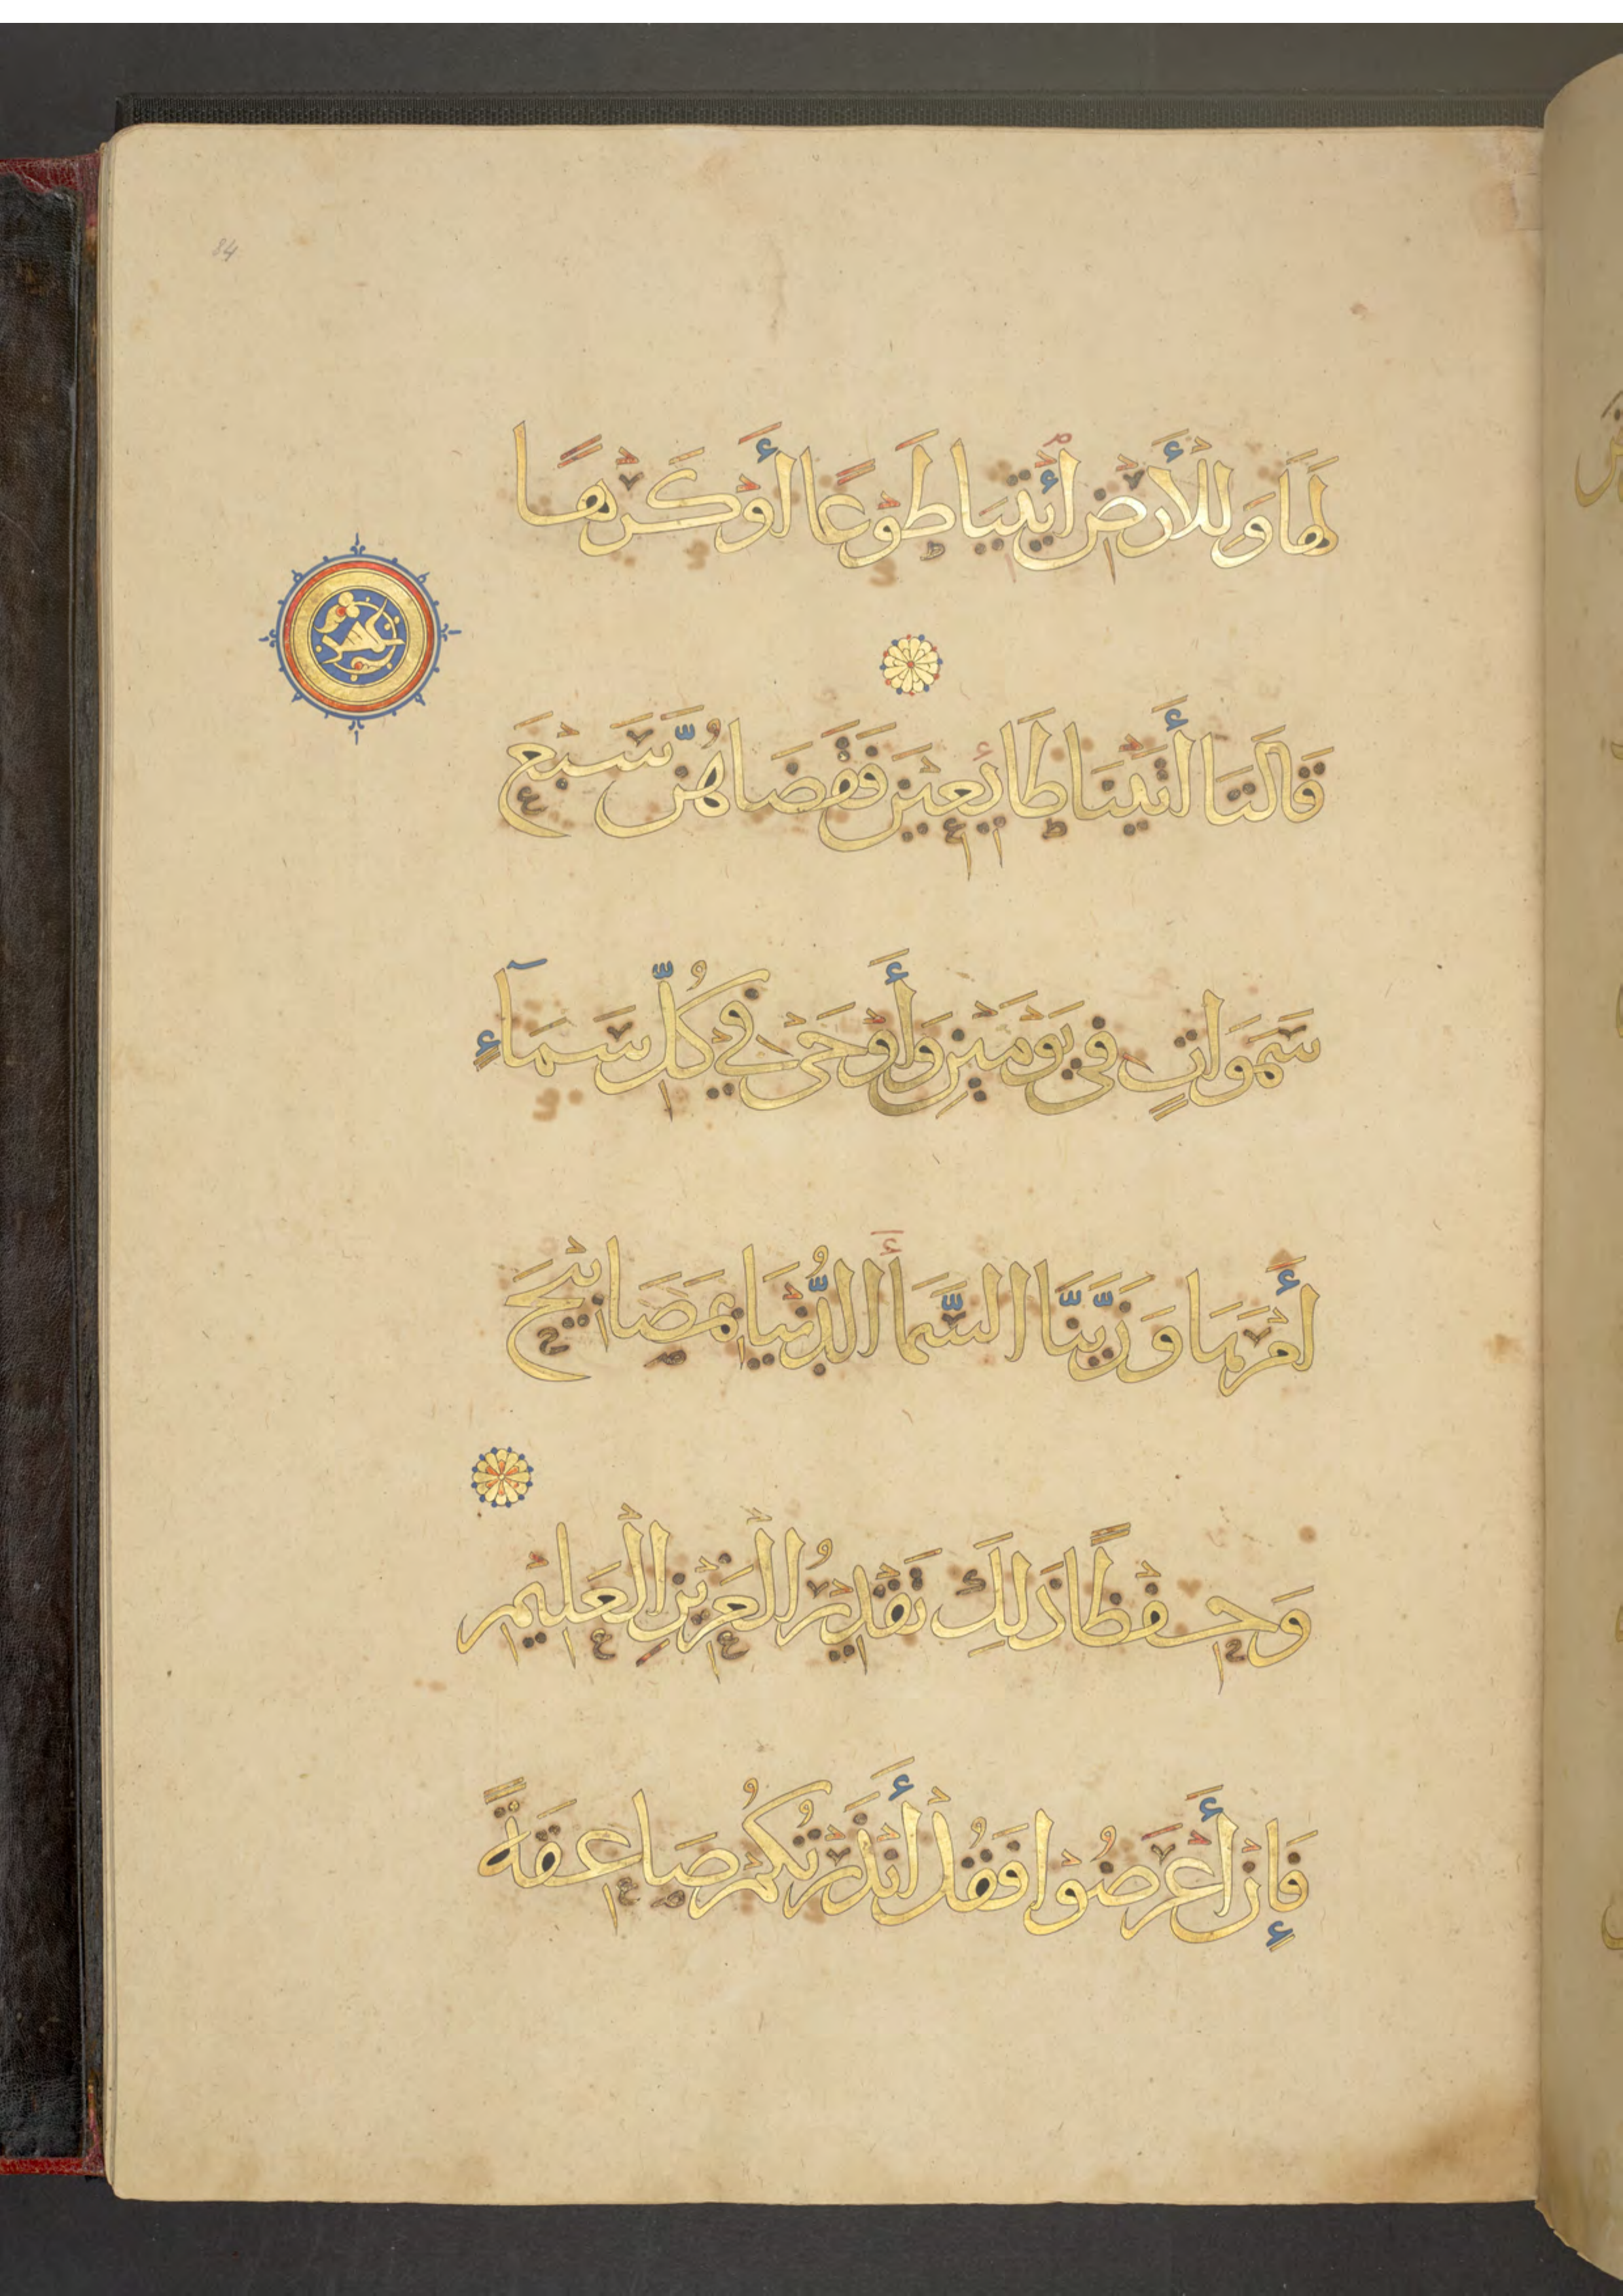 84
لَهَا وَلِلْأَرْضِ أْئْتِيَا طَوْعًا أَوْ كَرْهًا
قَالَتَا أَتَيْنَا طَائِعِينَ فَقَضَاهُنَّ سَبْعَ
سَمَوَاتٍ فِي يَوْمَيْنِ وَأَوْحَىٰ فِي كُلِّ سَمَآءٍ
أَمْرَهَا وَزَيَّنَّا السَّمَاءَ الدُّنْيَا بِمَصَابِيحَ
وَحِفْظًا ذَلِكَ تَقْدِيرُ الْعَزِيزِ الْعَلِيمِ
فَإِنْ أَعْرَضُوْا فَقُلْ أَنْذَرْتُكُمْ صَاعِقَةً